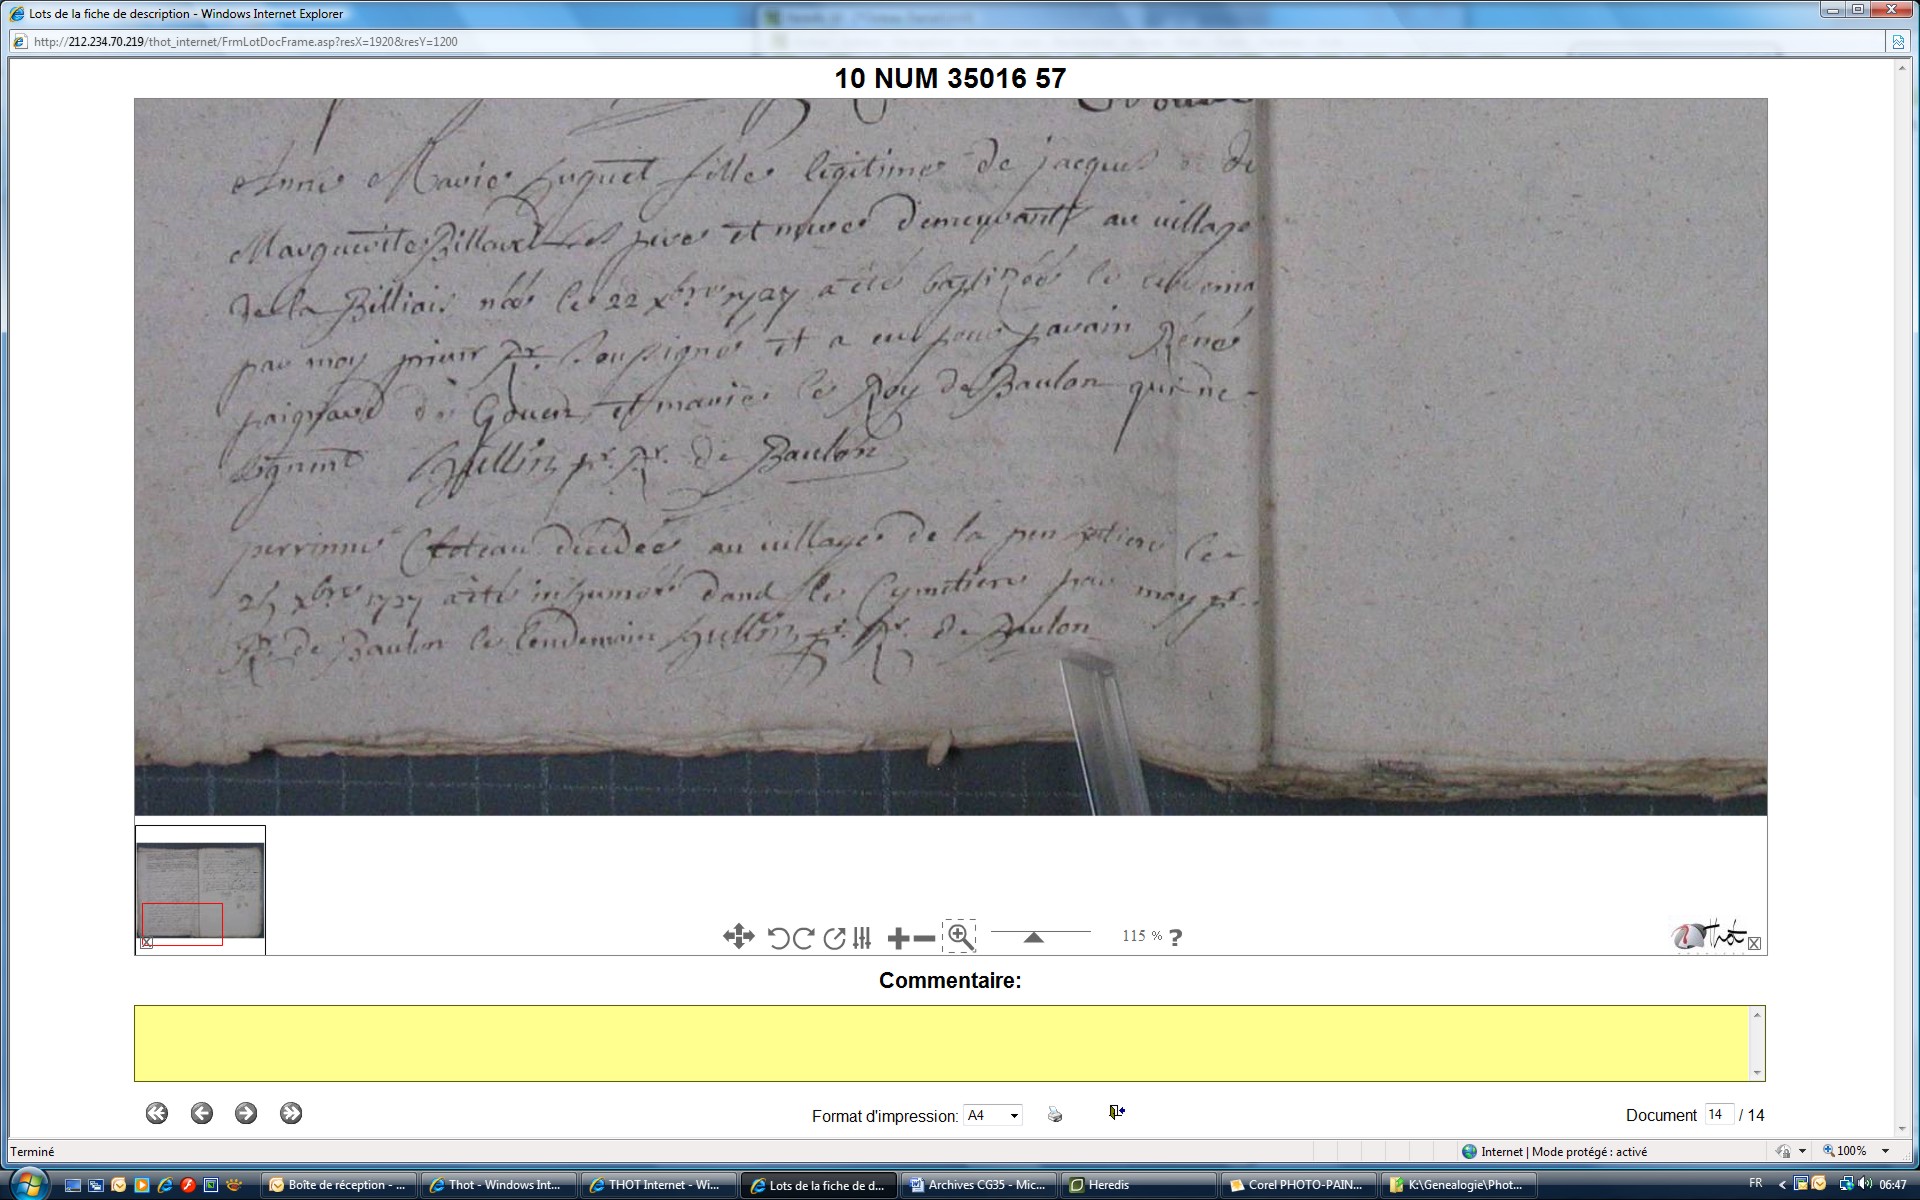 Lots de la fiche de description - Windows Internet Explorer
http://212.234.70.219/thot_internet/FrmLotDocFrame.asp?resX=1920&resY=1200
10 NUM 35016 57
Anne Marie huguet fille legitime de jacques de
Marguerite Billard ses pere et mere demeurants au village
de la Billiais née le 22 xbre 1727 a été baptizée le
par moy prieur Rr. Soussigné et a eu pour parain Réné
paignard de Goven et marie le Roy de Baulon qui ne
signent Hullin pr. Rr. de Baulon
perrinne décédée au village de la le
25 xbre 1727 a été inhumée dans le Cymetiere par moy pr.
Rr. de Baulon le lendemain Hullin pr. Rr. de Baulon
115 % ?
Thot
Commentaire:
Format d'impression: A4
Document 14 / 14
Terminé
Internet | Mode protégé : activé
100%
Boîte de réception - ...
Thot - Windows Int...
THOT Internet - Wi...
Lots de la fiche de d...
Archives CG35 - Mic...
Heredis
Corel PHOTO-PAIN...
K:\Genealogie\Phot...
FR
06:47